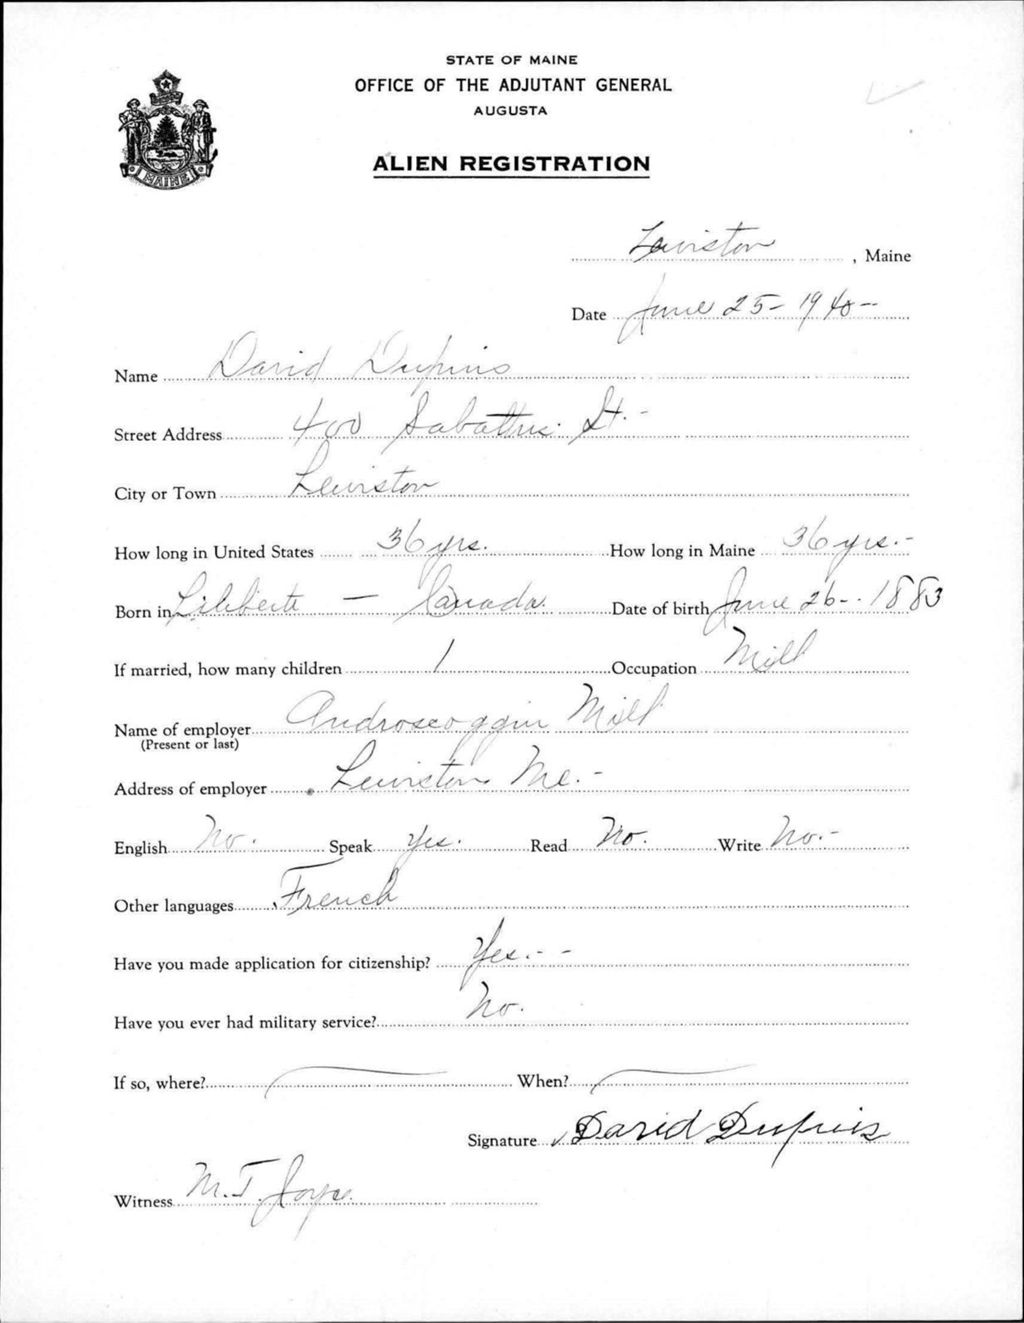 STATE OF MAINE
OFFICE OF THE ADJUTANT GENERAL
AUGUSTA
MAINE
ALIEN REGISTRATION
Lewiston, Maine
Date June 25 - 1940 --
Name David Dupuis
Street Address 400 Sabattus St. -
City or Town Lewiston
How long in United States 36 yrs. How long in Maine 36 yrs. -
Born in — Canada. Date of birth June 26 - 1883
If married, how many children 1 Occupation Mill
Name of employer Androscoggin Mill
(Present or last)
Address of employer Lewiston Me. -
English No. Speak Yes. Read No. Write No. -
Other languages French
Have you made application for citizenship? Yes. - -
Have you ever had military service? No.
If so, where? — When? —
Signature David Dupuis
Witness M. T. Joyce